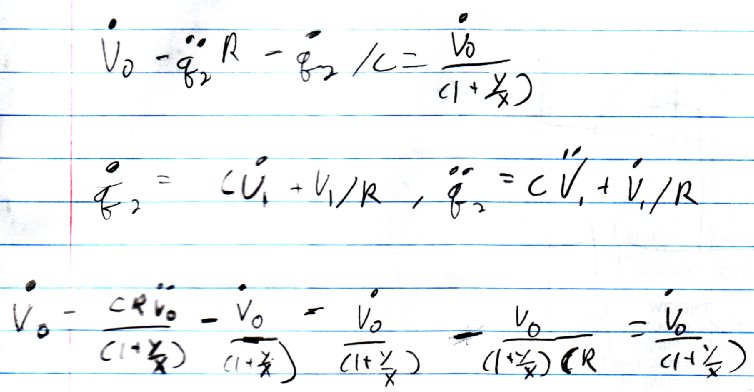 V̇₀ - q̈₂R - q̇₂/C = V̇₀/(1 + Y/X)
q̇₂ = CV̇₁ + V₁/R , q̈₂ = CV̈₁ + V̇₁/R
V̇₀ - CRV̈₀/(1+Y/X) - V̇₀/(1+Y/X) - V̇₀/(1+Y/X) - V₀/(1+Y/X)CR = V̇₀/(1+Y/X)